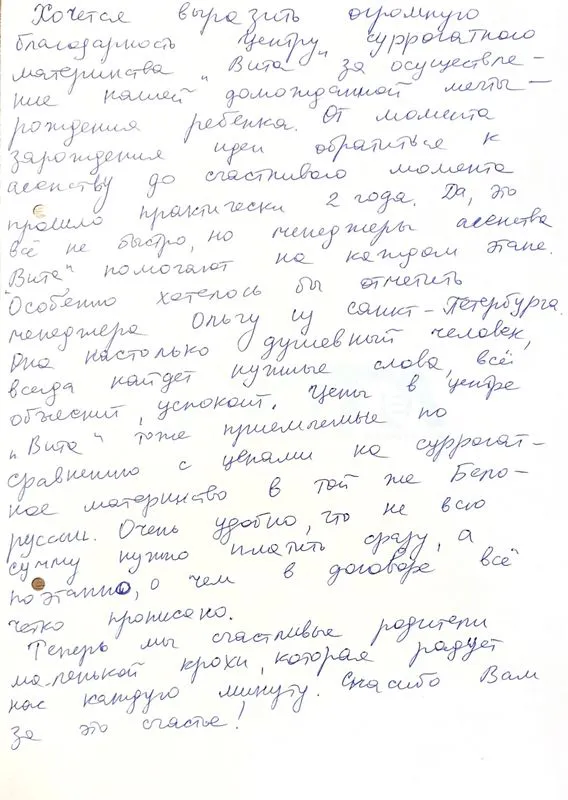 Хочется выразить огромную
благодарность Центру суррогатного
материнства "Вита" за осуществле-
ние нашей долгожданной мечты -
рождения ребёнка. От момента
зарождения идеи обратиться к
агенству до счастливого момента
прошло практически 2 года. Да, это
всё не быстро, но менеджеры агенства
"Вита" помогают на каждом этапе.
Особенно хотелось бы отметить
менеджера Ольгу из Санкт-Петербурга.
Она настолько душевный человек,
всегда найдет нужные слова, всё
объяснит, успокоит. Цены в центре
"Вита" тоже приемлемые по
сравнению с ценами на суррогат-
ное материнство в той же Бело-
руссии. Очень удобно, что не всю
сумму нужно платить сразу, а
поэтапно, о чем в договоре всё
четко прописано.
Теперь мы счастливые родители
маленькой крохи, которая радует
нас каждую минуту. Спасибо Вам
за это счастье!